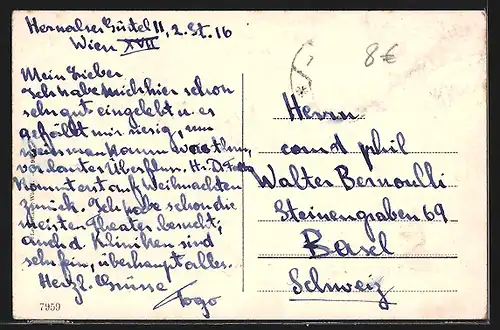 Hernalser Gürtel 11, 2. St. 16
Wien XVII
8€
Mein Lieber
Ich habe mich hier schon
sehr gut eingelebt u. es
gefällt mir riesig, nur
weiss man kaum was thun,
vor lauter Überfluss. Hr. D.
kommt erst auf Weihnachten
zurück. Ich habe schon die
meisten Theater besucht;
auch d. Kliniken sind
sehr fein, überhaupt alles.
Herzl. Grüsse
Togo
Herrn
cand phil
Walter Bernoulli
Steinengraben 69
Basel
Schweiz
7959